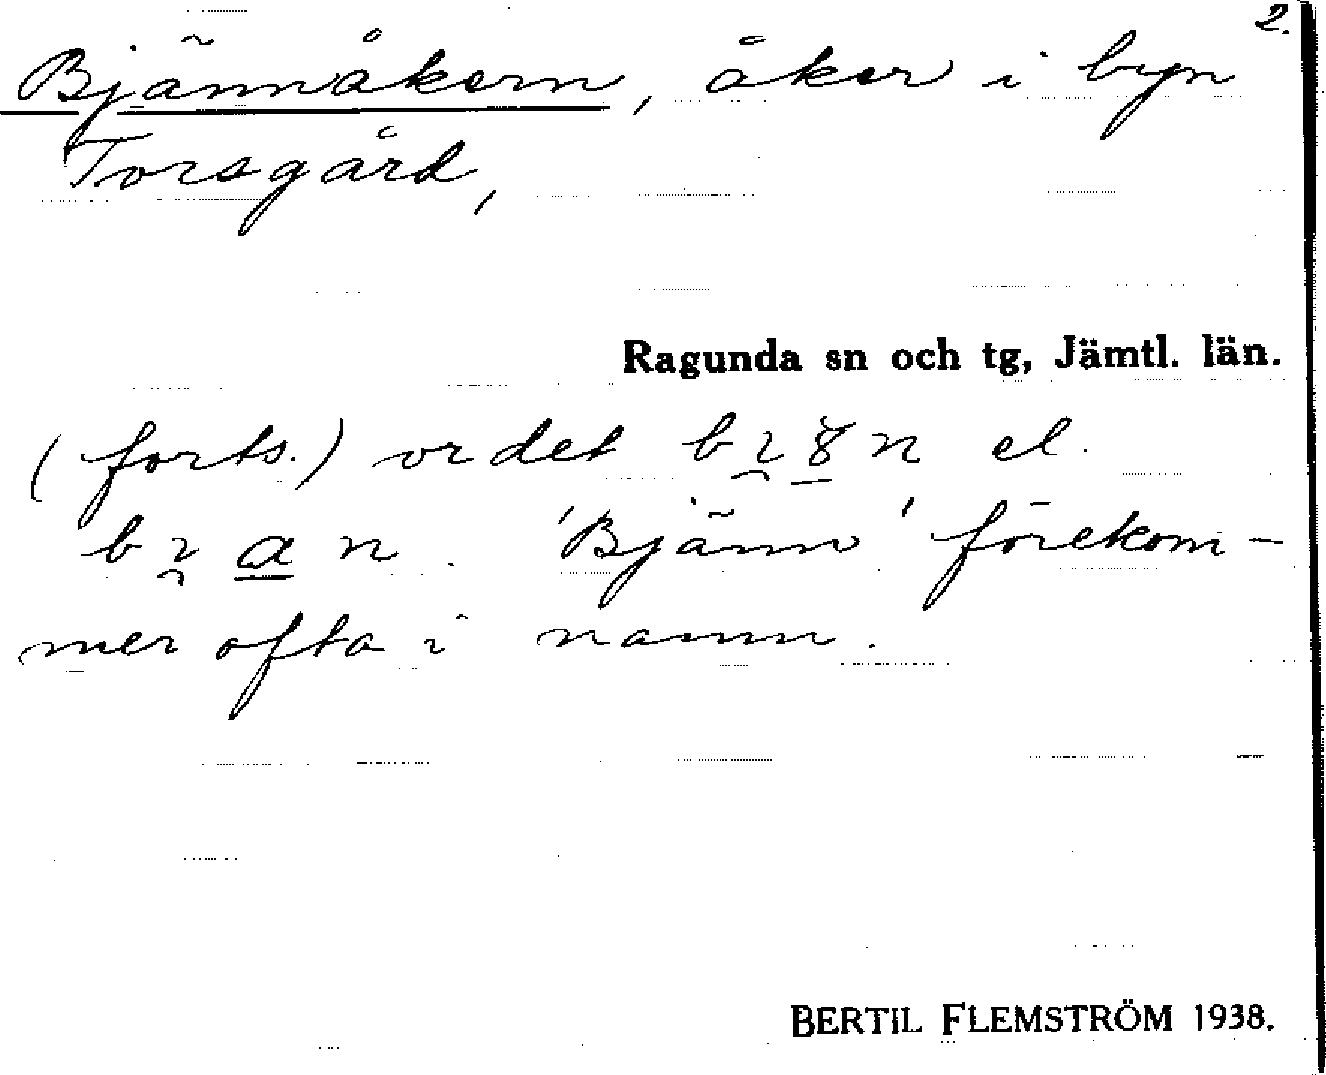 2.
Bjännåkern, åker i byn
Torsgård,
Ragunda sn och tg, Jämtl. län.
(forts.) ordet el.
'Bjänn' förekom-
mer ofta i namn.
BERTIL FLEMSTRÖM 1938.